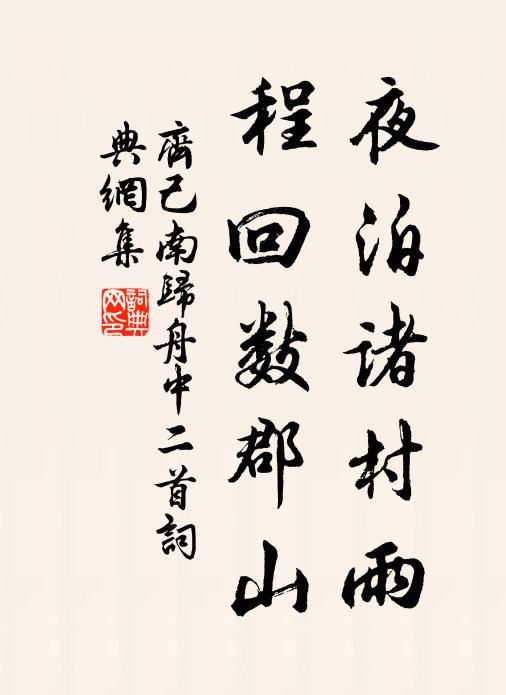 夜泊诸村雨
程回数郡山
齊己南歸舟中二首詞
典網集
詞典網印